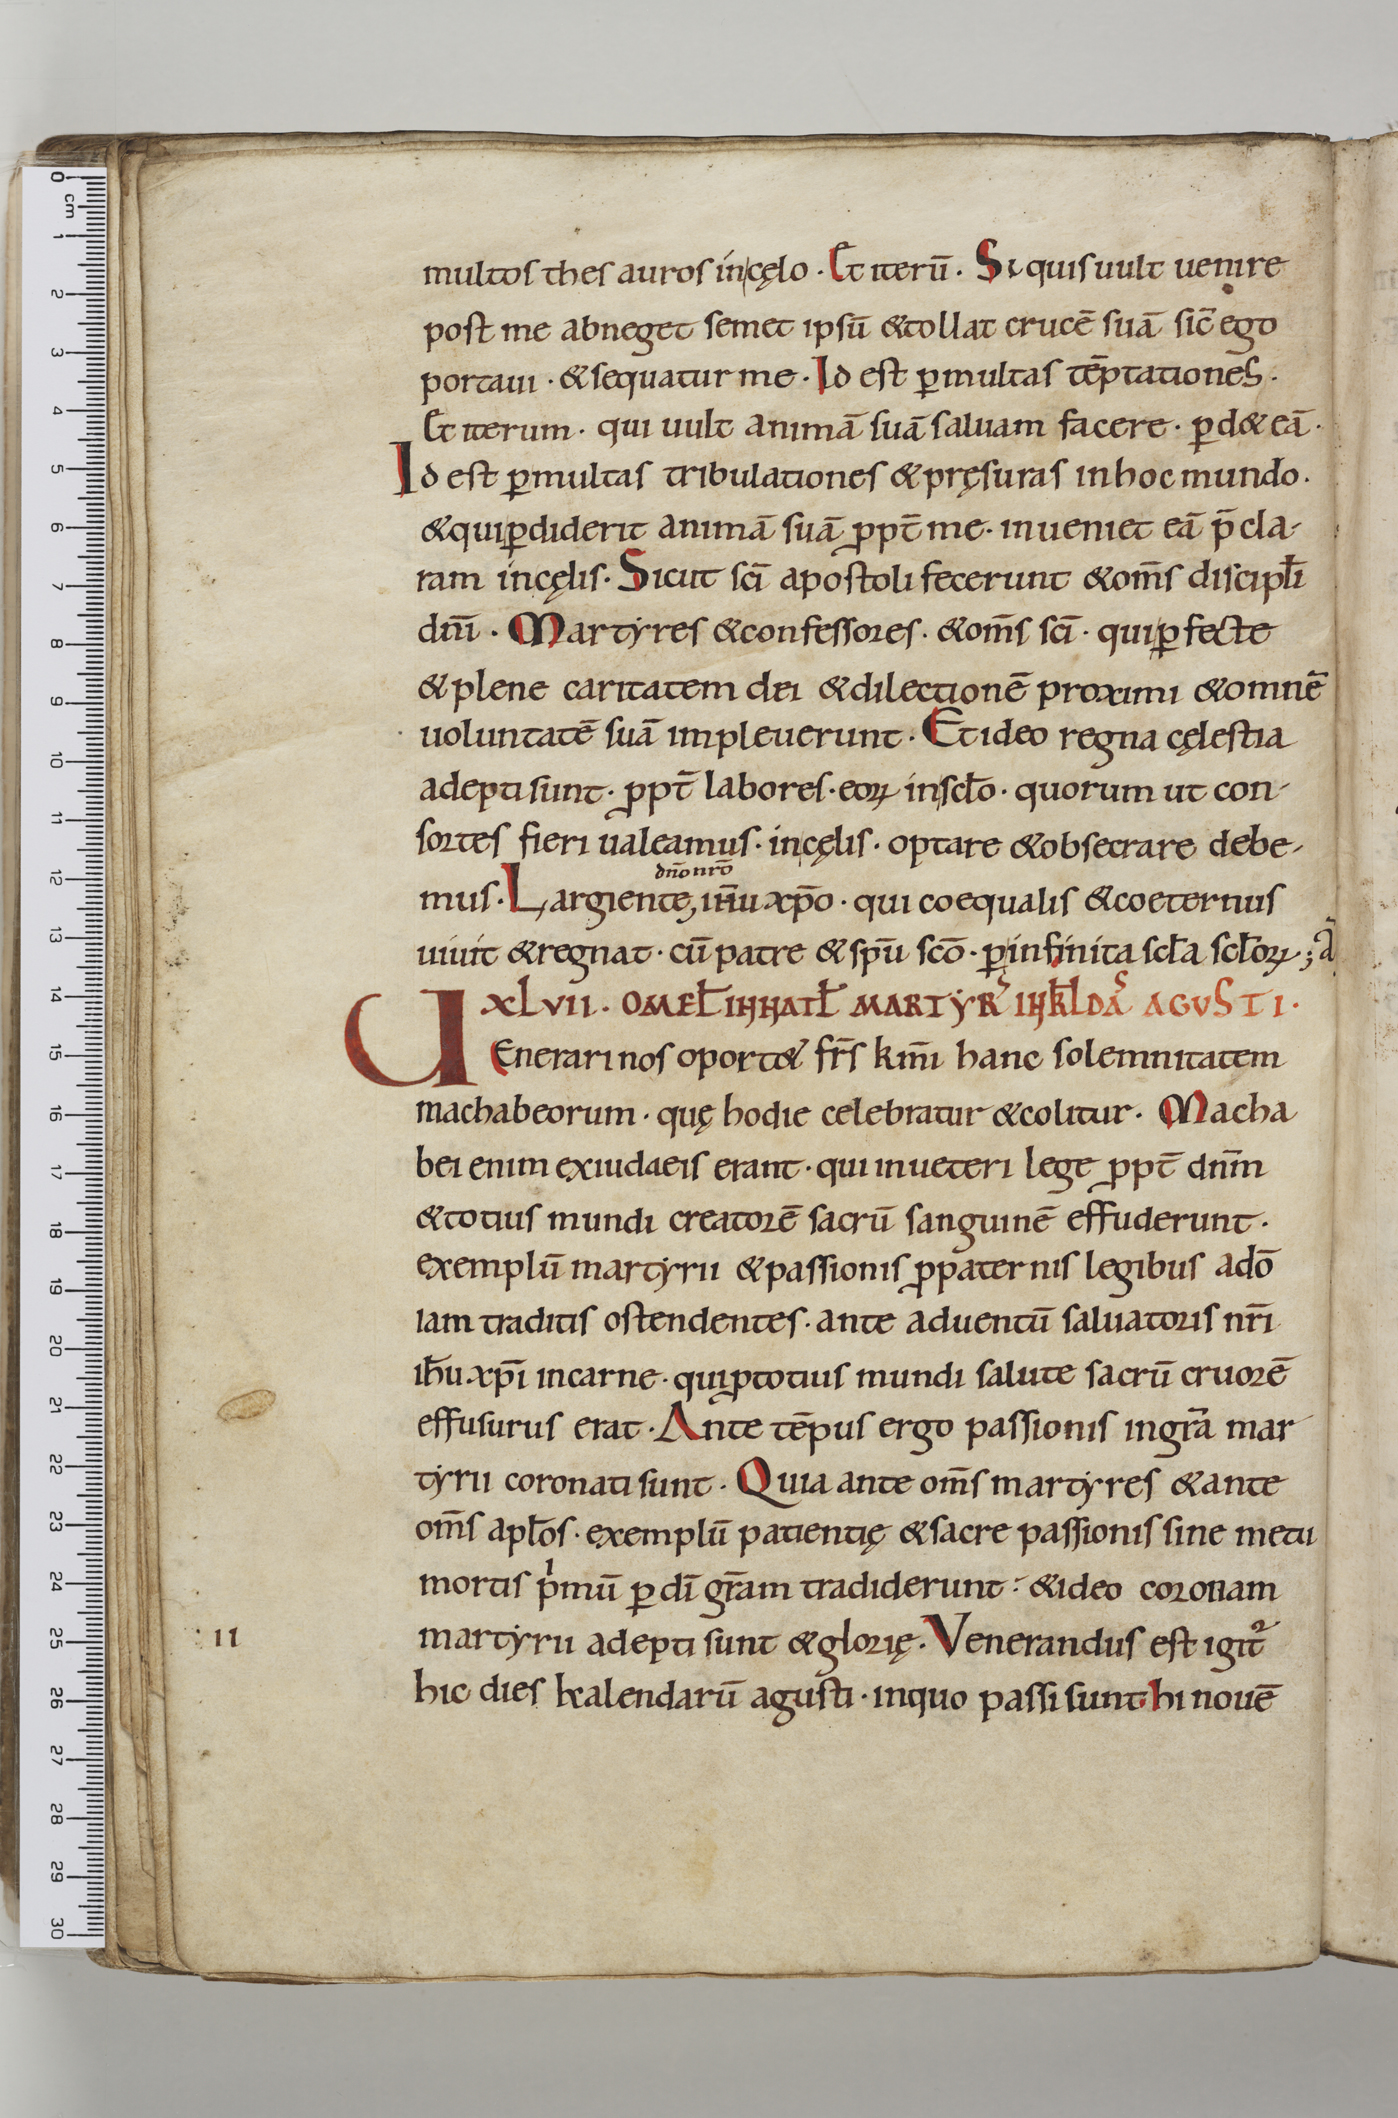 multos thesauros in cęlo · Et iterū · Si quis uult uenire
post me abneget semet ipsū & tollat crucē suā sic̄ ego
portaui · & sequatur me · Id est ꝑ multas tēptationes ·
Et iterum · qui uult animā suā saluam facere · ꝑd& eā ·
Id est ꝑ multas tribulationes & pręsuras in hoc mundo ·
& qui ꝑdiderit animā suā ꝓpt̄ me · inueniet eā p̄cla-
ram in cęlis · Sicut sc̄i apostoli fecerunt & om̄s discipl̄i
dn̄i · Martyres & confessores · & om̄s sc̄i · qui ꝑfecte
& plene caritatem dei & dilectionē proximi & omnē
uoluntatē suā impleuerunt · Et ideo regna cęlestia
adepti sunt · ꝓpt̄ labores · eoꝝ in scl̄o · quorum ut con-
sortes fieri ualeamus · in cęlis · optare & obsecrare debe-
dn̄o nr̄o
mus · Largiente, ih̄u xp̄o · qui coequalis & coeternus
uiuit & regnat · cū patre & sp̄u sc̄o · ꝑ infinita scl̄a scl̄oꝝ ; A̅
XLVII · OMEL̄ IN NATL̄ MARTYR̄ IN KL̄DA̅ AGVSTI ·
UEnerari nos oport& fr̄s km̄i hanc solemnitatem
machabeorum · quę hodie celebratur & colitur · Macha
bei enim ex iudaeis erant · qui in ueteri lege ꝓpt̄ dn̄m
& totius mundi creatorē sacrū sanguinē effuderunt ·
exemplū martyrii & passionis ꝓ paternis legibus a dō
iam traditis ostendentes · ante aduentū saluatoris nr̄i
ih̄u xp̄i in carne · qui ꝓ totius mundi salute sacrū cruorē
effusurus erat · Ante tēpus ergo passionis in gr̄a mar
tyrii coronati sunt · Quia ante om̄s martyres & ante
om̄s apl̄os · exemplū patientię & sacre passionis sine metu
mortis pͥmū ꝑ dī gr̄am tradiderunt · & ideo coronam
11
martyrii adepti sunt & glorię · Venerandus est igit᷑
hic dies kalendarū agusti · in quo passi sunt hi nouē